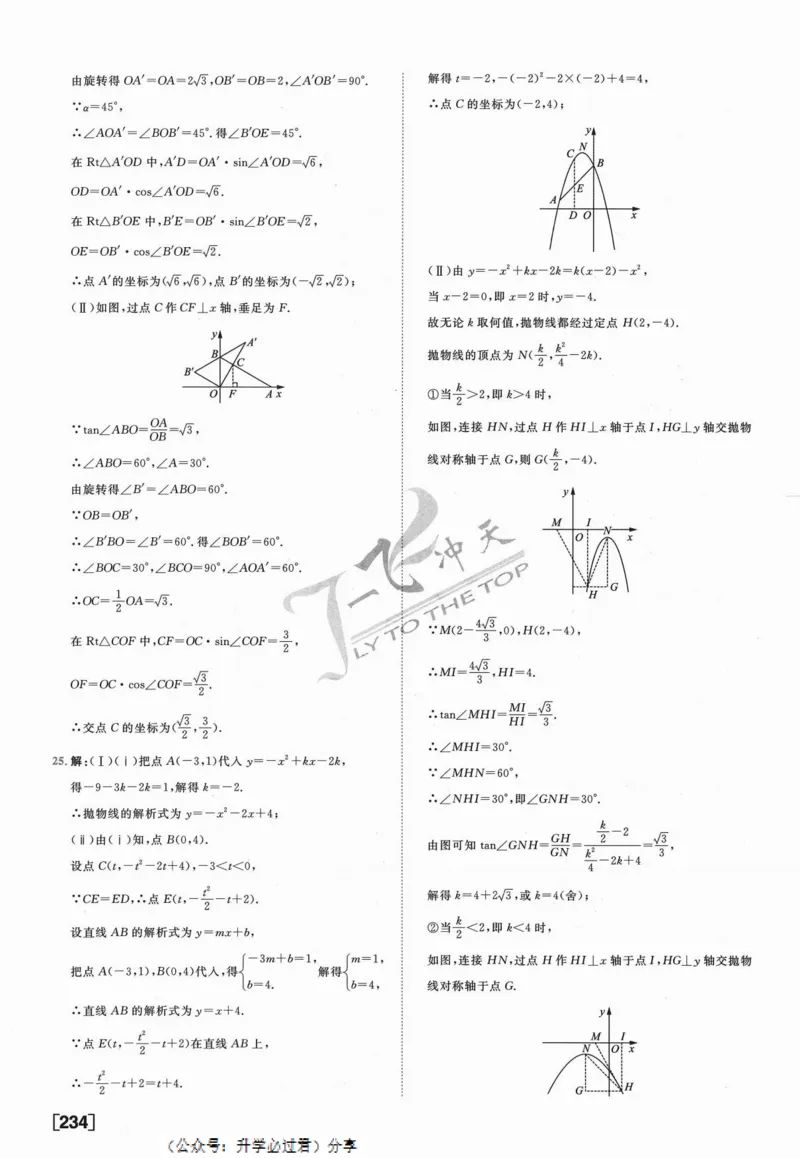 由旋转得 OA′=OA=2√3,OB′=OB=2,∠A′OB′=90°.
∵α=45°,
∴∠AOA′=∠BOB′=45°.得∠B′OE=45°.
在 Rt△A′OD 中,A′D=OA′·sin∠A′OD=√6,
OD=OA′·cos∠A′OD=√6.
在 Rt△B′OE 中,B′E=OB′·sin∠B′OE=√2,
OE=OB′·cos∠B′OE=√2.
∴点 A′的坐标为(√6,√6),点 B′的坐标为(-√2,√2);
(Ⅱ)如图,过点 C 作 CF⊥x 轴,垂足为 F.
y
A′
B
C
B′
O F A x
∵tan∠ABO=OA/OB=√3,
∴∠ABO=60°,∠A=30°.
由旋转得∠B′=∠ABO=60°.
∵OB=OB′,
∴∠B′BO=∠B′=60°.得∠BOB′=60°.
∴∠BOC=30°,∠BCO=90°,∠AOA′=60°.
∴OC=1/2OA=√3.
在 Rt△COF 中,CF=OC·sin∠COF=3/2,
OF=OC·cos∠COF=√3/2.
∴交点 C 的坐标为(√3/2,3/2).
25.解:(Ⅰ)(ⅰ)把点 A(-3,1)代入 y=-x²+kx-2k,
得-9-3k-2k=1,解得 k=-2.
∴抛物线的解析式为 y=-x²-2x+4;
(ⅱ)由(ⅰ)知,点 B(0,4).
设点 C(t,-t²-2t+4),-3<t<0,
∵CE=ED,∴点 E(t,-t²/2-t+2).
设直线 AB 的解析式为 y=mx+b,
把点 A(-3,1),B(0,4)代入,得{-3m+b=1, b=4. 解得{m=1, b=4,
∴直线 AB 的解析式为 y=x+4.
∵点 E(t,-t²/2-t+2)在直线 AB 上,
∴-t²/2-t+2=t+4.
[234]
解得 t=-2,-(-2)²-2×(-2)+4=4,
∴点 C 的坐标为(-2,4);
y
C N
B
E
A
D O x
(Ⅱ)由 y=-x²+kx-2k=k(x-2)-x²,
当 x-2=0,即 x=2 时,y=-4.
故无论 k 取何值,抛物线都经过定点 H(2,-4).
抛物线的顶点为 N(k/2,k²/4-2k).
①当k/2>2,即 k>4 时,
如图,连接 HN,过点 H 作 HI⊥x 轴于点 I,HG⊥y 轴交抛物
线对称轴于点 G,则 G(k/2,-4).
y
M I N
O x
H G
∵M(2-4√3/3,0),H(2,-4),
∴MI=4√3/3,HI=4.
∴tan∠MHI=MI/HI=√3/3.
∴∠MHI=30°.
∵∠MHN=60°,
∴∠NHI=30°,即∠GNH=30°.
由图可知 tan∠GNH=GH/GN=(k/2-2)/(k²/4-2k+4)=√3/3,
解得 k=4+2√3,或 k=4(舍);
②当k/2<2,即 k<4 时,
如图,连接 HN,过点 H 作 HI⊥x 轴于点 I,HG⊥y 轴交抛物
线对称轴于点 G.
y
M I
N O x
G H
一飞冲天
FLY TO THE TOP
(公众号:升学必过君)分享